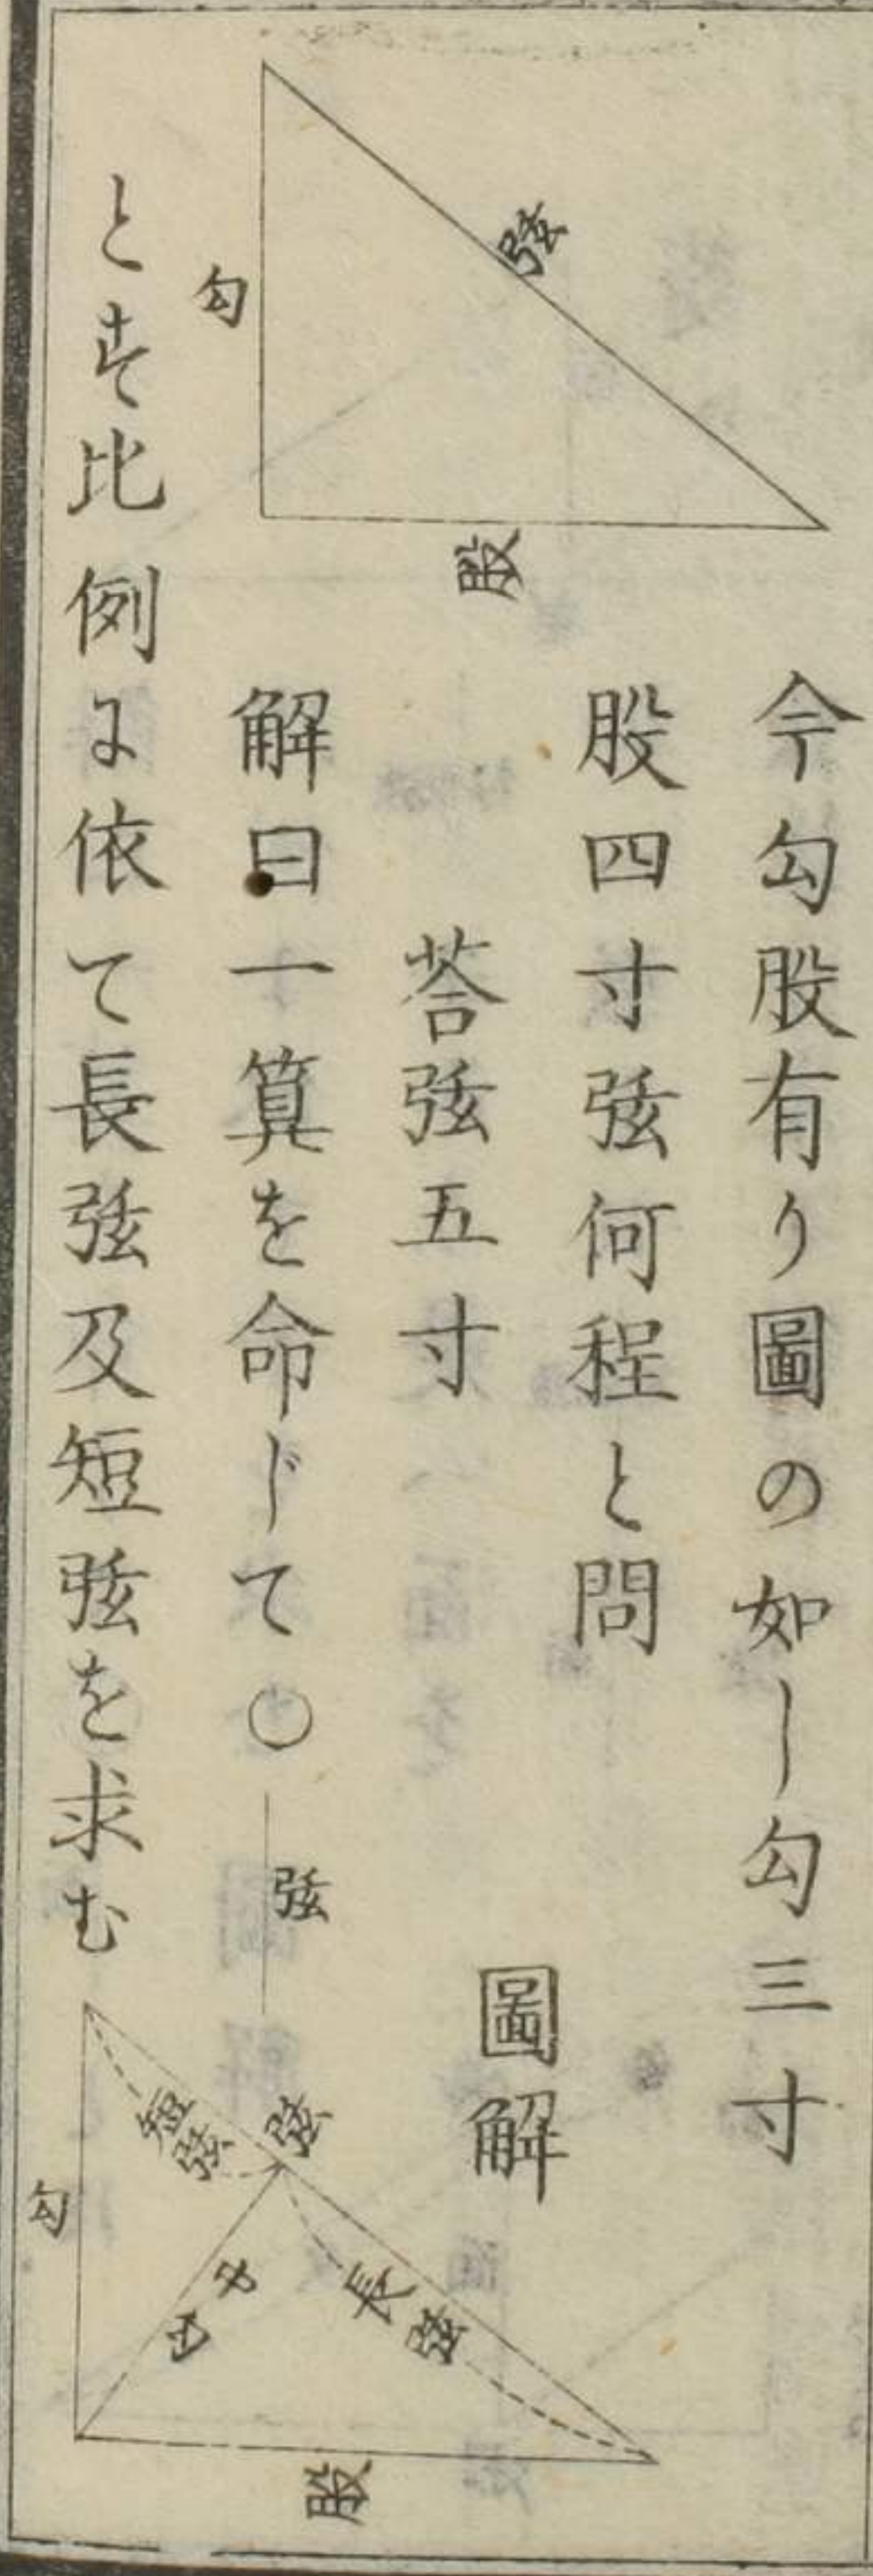 弦
勾
股
今勾股有り圖の如し勾三寸
股四寸弦何程と問
荅弦五寸
圖解
解曰一算を命じて〇弦
とす比例に依て長弦及短弦を求む
短弦
弦
長弦
勾
股